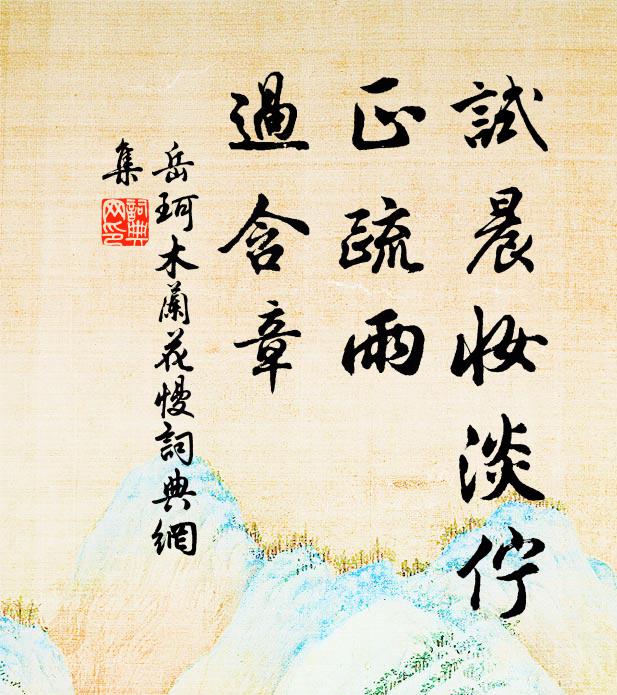 試晨妝淡佇
正疏雨
過含章
岳珂木蘭花慢詞典網
集
詞典网印